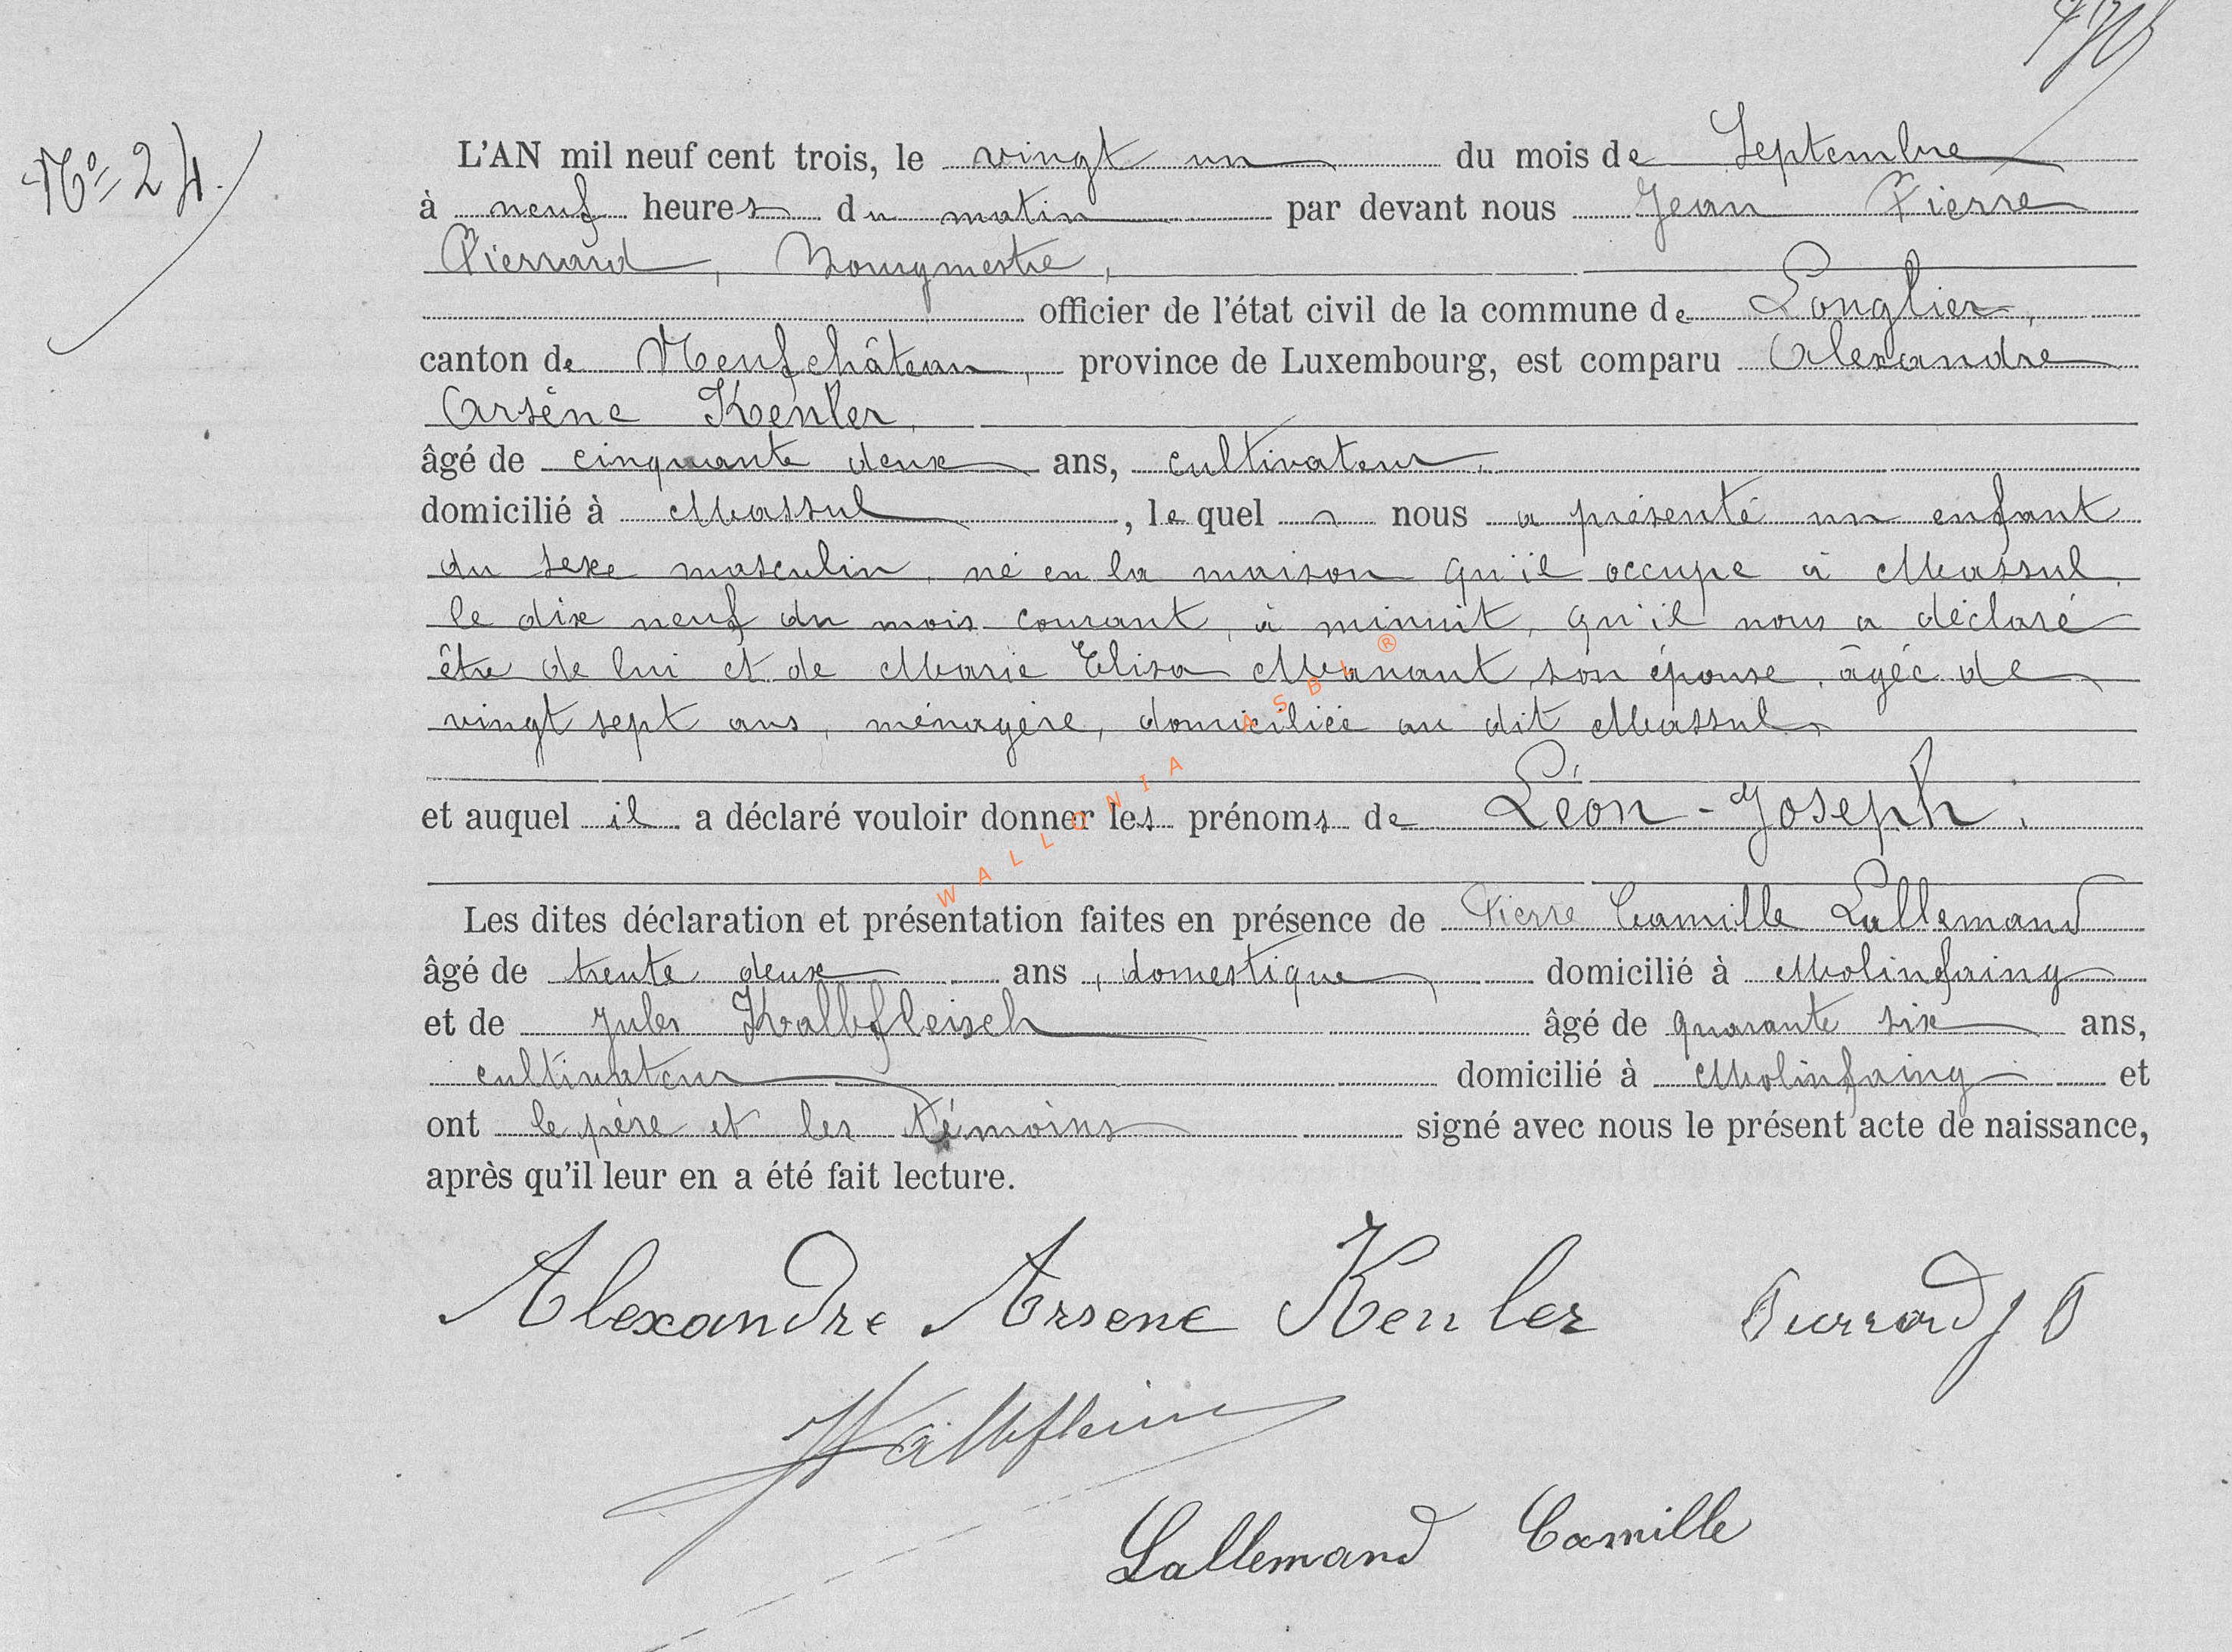 N° 24.
L'AN mil neuf cent trois, le vingt un du mois de Septembre
à neuf heures du matin par devant nous Jean Pierre
Pierrard, Bourgmestre,
officier de l'état civil de la commune de Longlier,
canton de Neufchâteau, province de Luxembourg, est comparu Alexandre
Arsène Kenler,
âgé de cinquante deux ans, cultivateur,
domicilié à Massul, lequel nous a présenté un enfant
du sexe masculin, né en la maison qu'il occupe à Massul,
le dix neuf du mois courant, à minuit, qu'il nous a déclaré
être de lui et de Marie Elisa Manant, son épouse, âgée de
vingt sept ans, ménagère, domiciliée au dit Massul
et auquel il a déclaré vouloir donner les prénoms de Léon-Joseph.
Les dites déclaration et présentation faites en présence de Pierre Camille Lallemand
âgé de trente deux ans, domestique domicilié à Molinfaing
et de Jules Kalbfleisch âgé de quarante six ans,
cultivateur domicilié à Molinfaing et
ont le père et les témoins signé avec nous le présent acte de naissance,
après qu'il leur en a été fait lecture.
Alexandre Arsene Kenler
Lallemand Camille
WALLONIA ASBL ®